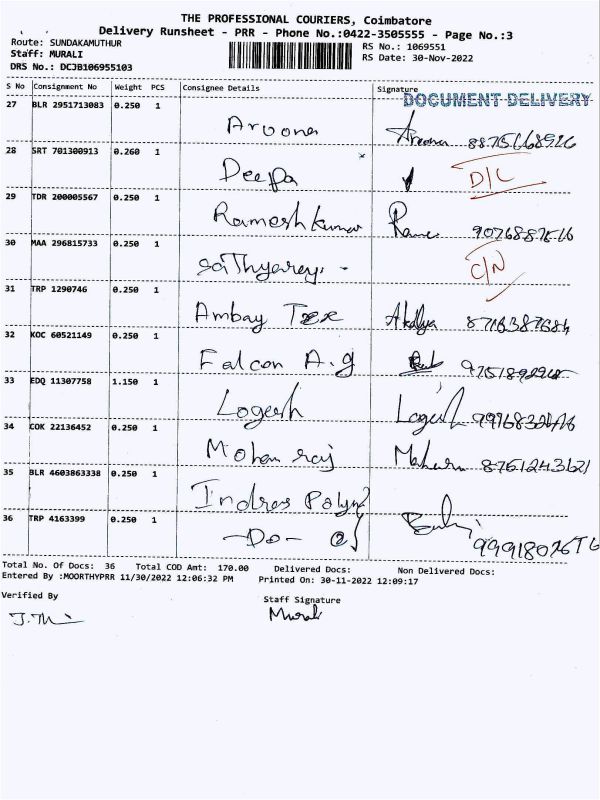 THE PROFESSIONAL COURIERS, Coimbatore
Delivery Runsheet - PRR - Phone No.:0422-3505555 - Page No.:3
Route: SUNDAKAMUTHUR
RS No.: 1069551
Staff: MURALI
RS Date: 30-Nov-2022
DRS No.: DCJB106955103
S No Consignment No Weight PCS Consignee Details Signature
DOCUMENT DELIVERY
27 BLR 2951713083 0.250 1
Aroona
28 SRT 701300913 0.260 1
Deepa D/L
29 TDR 200005567 0.250 1
Ramesh kumar
30 MAA 296815733 0.250 1
C/N
31 TRP 1290746 0.250 1
Ambay Tex
32 KOC 60521149 0.250 1
Falcon A.g
33 EDQ 11307758 1.150 1
Logesh
34 COK 22136452 0.250 1
Mohan raj 8761243621
35 BLR 4603863338 0.250 1
Indres
36 TRP 4163399 0.250 1
-Do-
Total No. Of Docs: 36 Total COD Amt: 170.00 Delivered Docs: Non Delivered Docs:
Entered By :MOORTHYPRR 11/30/2022 12:06:32 PM Printed On: 30-11-2022 12:09:17
Verified By
Staff Signature
Murali